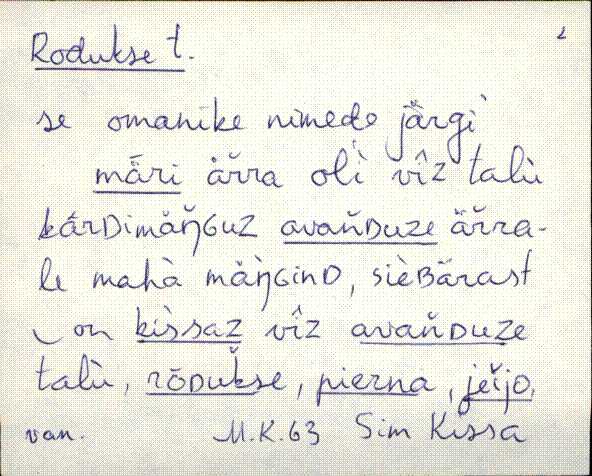 Rodukse t.
2
se omanike nimede järgi
märi ärra oli vîz talù
kārDimäŋGuz avaňDuze ärra-
le mahà mäŋGinD, sièBärast
on kìssaz vîz avaňDuze
talù, rōDukse, pierna, jeijo,
van. M.K. 63 Sim Kissa